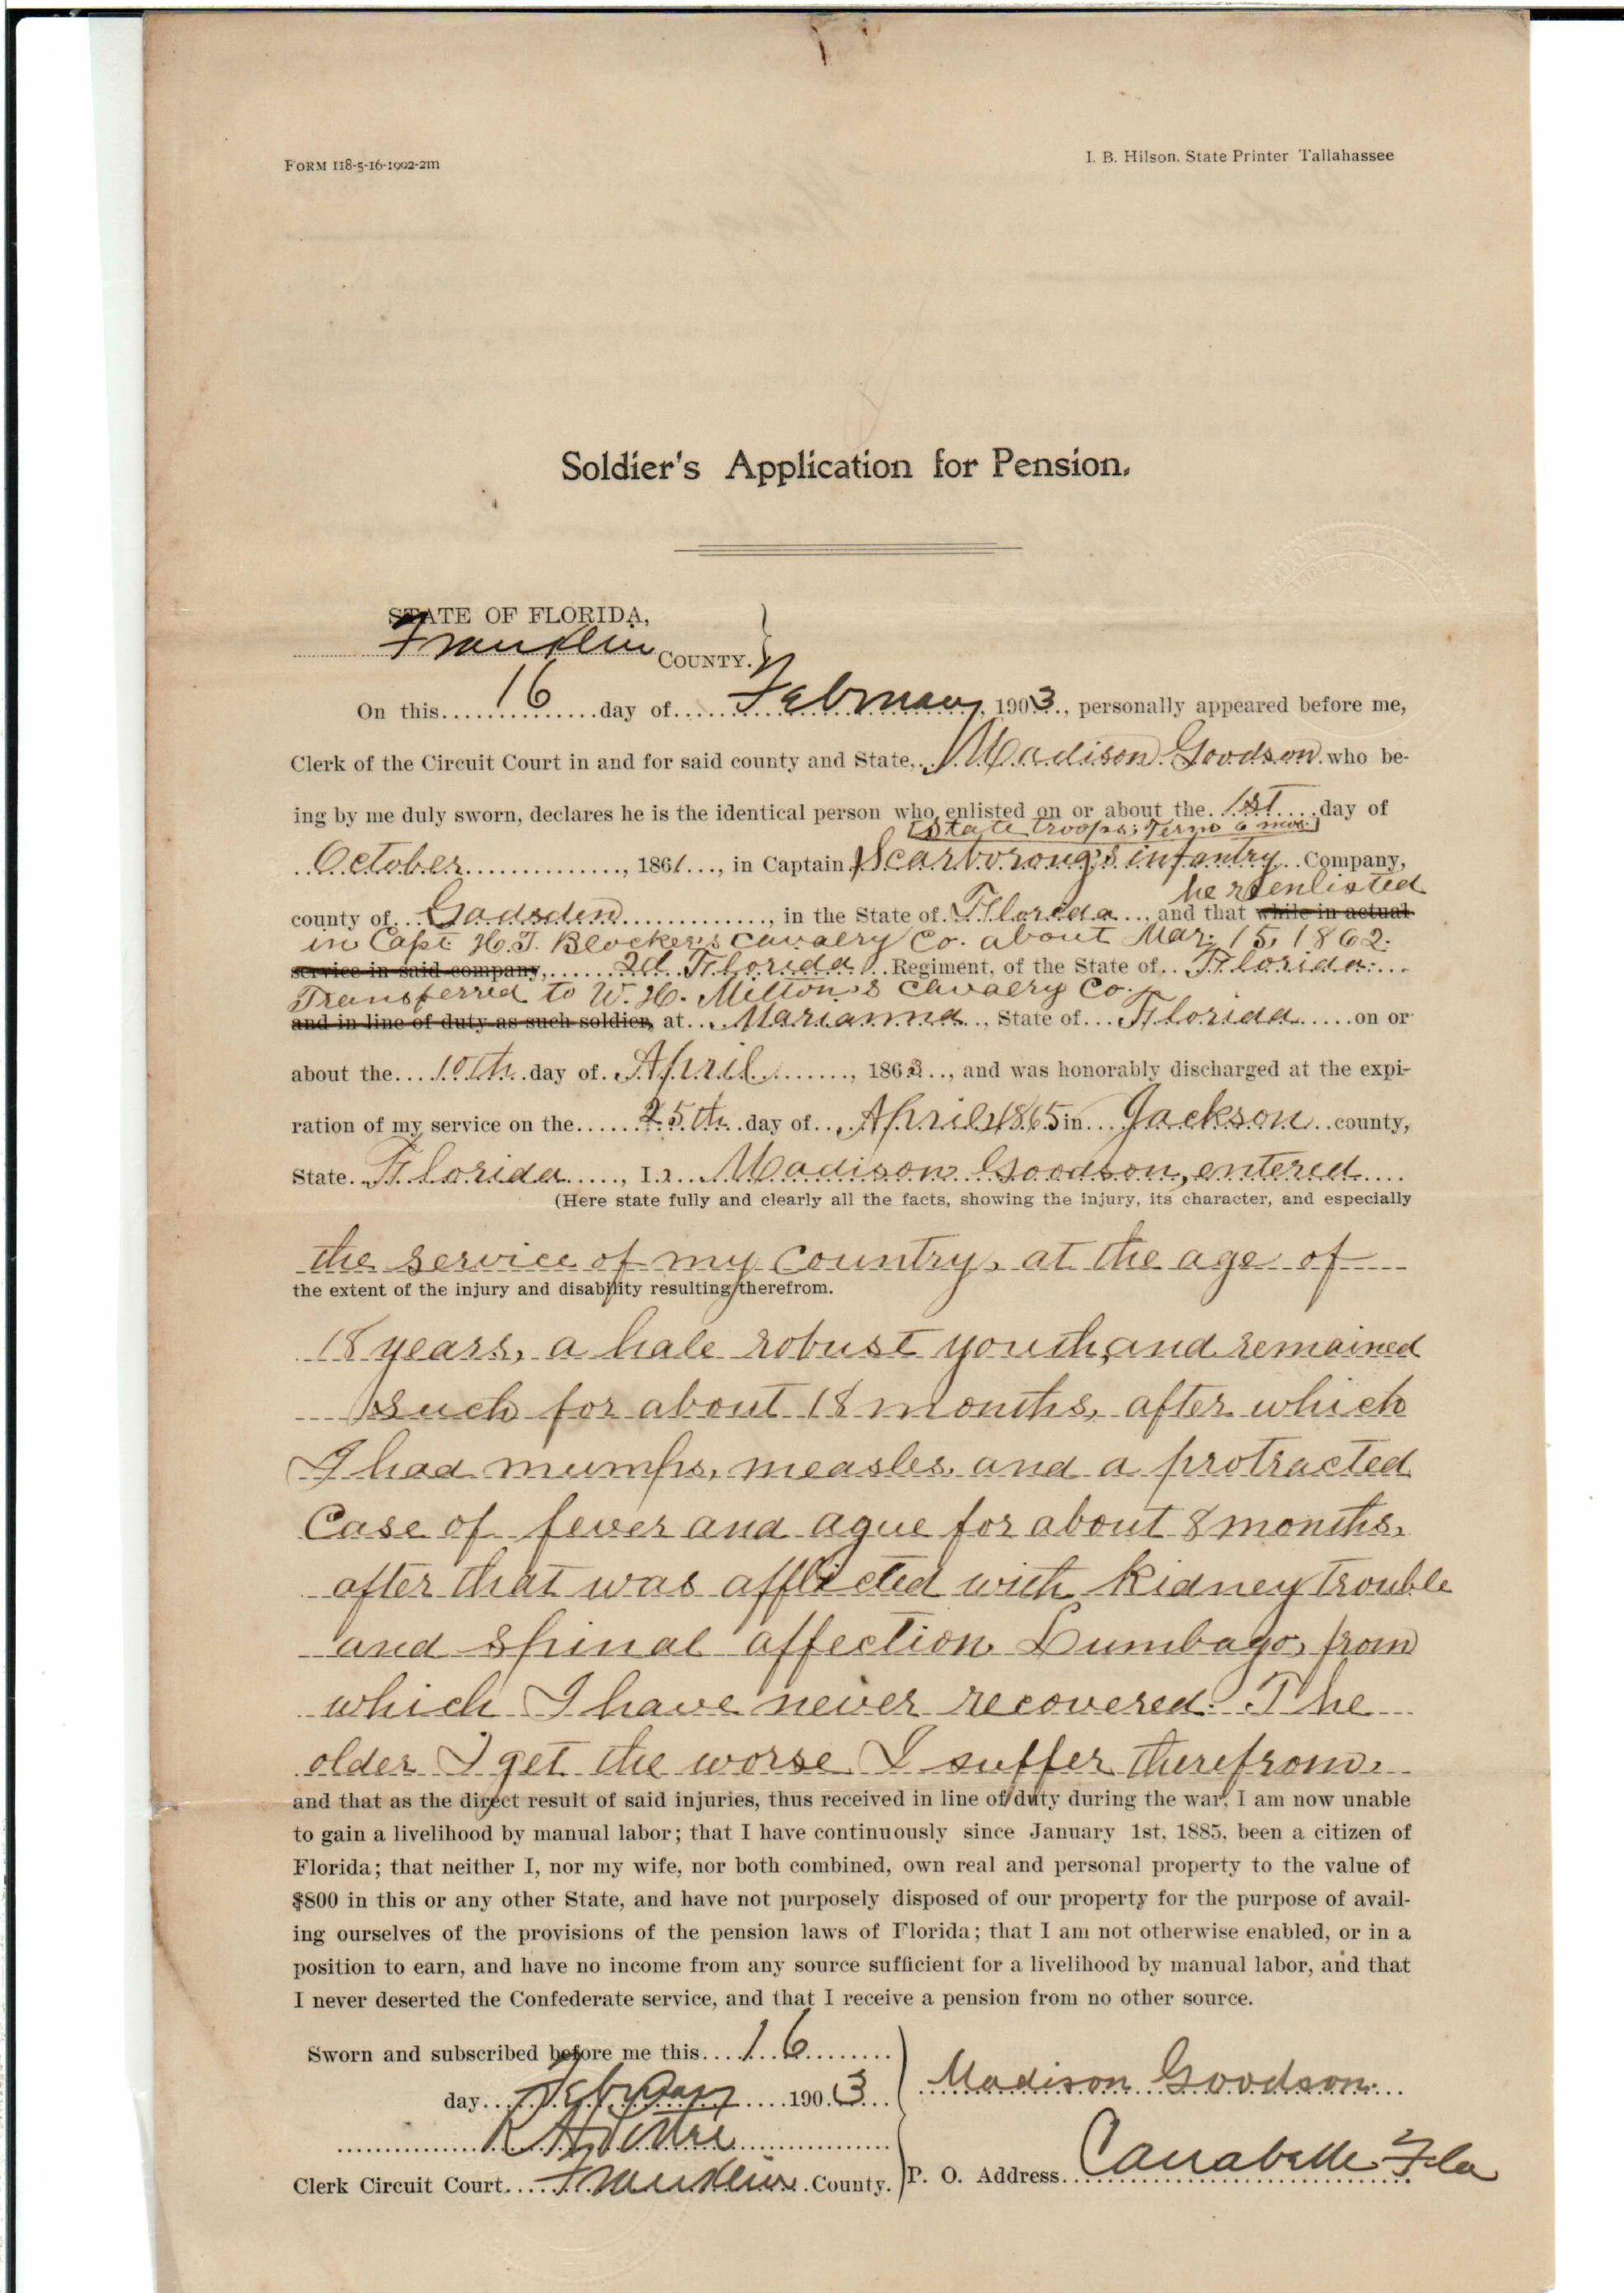 FORM 118-5-16-1902-2m
I. B. Hilson, State Printer Tallahassee
Soldier's Application for Pension.
STATE OF FLORIDA,
Franklin COUNTY.
On this 16 day of February, 1903, personally appeared before me,
Clerk of the Circuit Court in and for said county and State, Madison Goodson who be-
ing by me duly sworn, declares he is the identical person who enlisted on or about the 1st day of
[State troops; Term 6 mos.]
October, 1861, in Captain Scarborough's infantry Company,
he reenlisted
county of Gadsden, in the State of Florida, and that while in actual
in Capt. H. T. Blocker's cavalry Co. about Mar. 15, 1862.
service in said company, 2d Florida Regiment, of the State of Florida
Transferred to W. H. Milton's cavalry Co.
and in line of duty as such soldier, at Marianna, State of Florida on or
about the 10th day of April, 186, and was honorably discharged at the expi-
ration of my service on the 25th day of April 1865 in Jackson county,
State Florida, I, Madison Goodson, entered
(Here state fully and clearly all the facts, showing the injury, its character, and especially
the service of my country, at the age of
the extent of the injury and disability resulting therefrom.
18 years, a hale robust youth, and remained
such for about 18 months, after which
I had mumps, measles, and a protracted
Case of fever and ague for about 8 months.
after that was afflicted with Kidney trouble
and Spinal affection Lumbago, from
which I have never recovered. The
older I get the worse I suffer therefrom.
and that as the direct result of said injuries, thus received in line of duty during the war, I am now unable
to gain a livelihood by manual labor; that I have continuously since January 1st, 1885, been a citizen of
Florida; that neither I, nor my wife, nor both combined, own real and personal property to the value of
$800 in this or any other State, and have not purposely disposed of our property for the purpose of avail-
ing ourselves of the provisions of the pension laws of Florida; that I am not otherwise enabled, or in a
position to earn, and have no income from any source sufficient for a livelihood by manual labor, and that
I never deserted the Confederate service, and that I receive a pension from no other source.
Sworn and subscribed before me this 16
day February 1903
Madison Goodson
Clerk Circuit Court Franklin County.
P. O. Address Carrabelle Fla